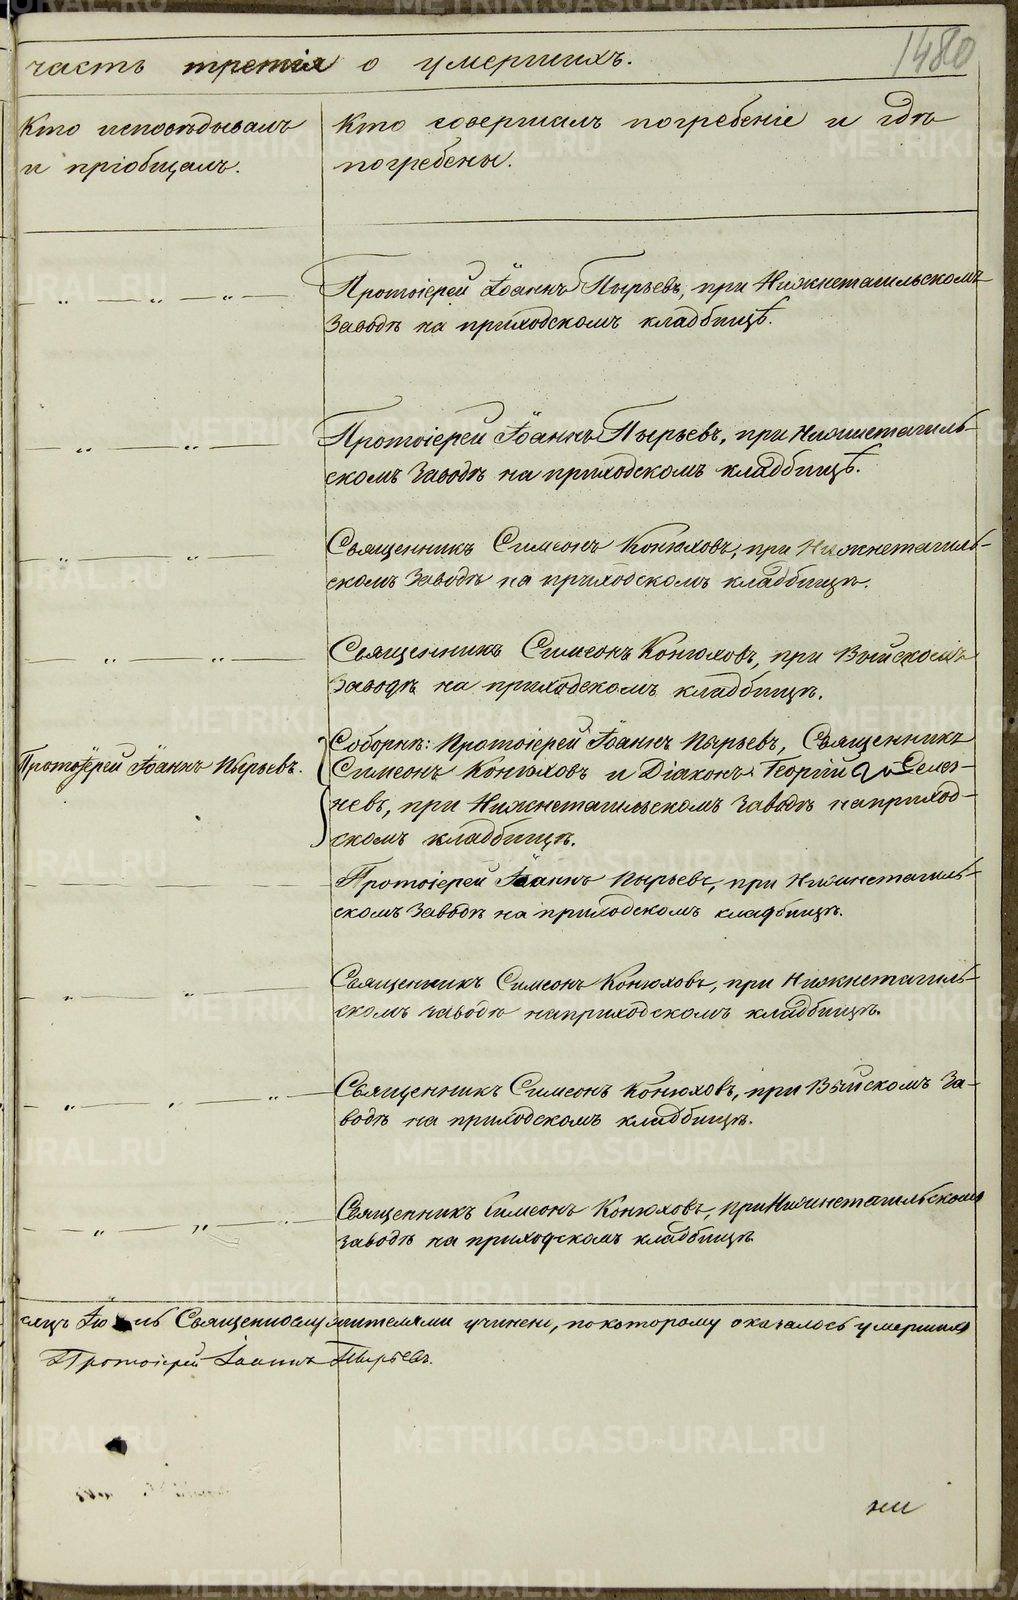 1480
часть третія о умершихъ.
Кто исповѣдывалъ
и пріобщалъ.
Кто совершалъ погребеніе и гдѣ
погребены.
Протоіерей Іоаннъ Пырьевъ, при Нижнетагильскомъ
заводѣ на приходскомъ кладбищѣ.
Протоіерей Іоаннъ Пырьевъ, при Нижнетагиль-
скомъ заводѣ на приходскомъ кладбищѣ.
Священникъ Симеонъ Конюховъ, при Нижнетагиль-
скомъ заводѣ на приходскомъ кладбищѣ.
Священникъ Симеонъ Конюховъ, при Выйскомъ
заводѣ на приходскомъ кладбищѣ.
Протоіерей Іоаннъ Пырьевъ.
Соборнѣ: Протоіерей Іоаннъ Пырьевъ, Священникъ
Симеонъ Конюховъ и Діаконъ Георгій Селез-
невъ, при Нижнетагильскомъ заводѣ на приход-
скомъ кладбищѣ.
Протоіерей Іоаннъ Пырьевъ, при Нижнетагиль-
скомъ заводѣ на приходскомъ кладбищѣ.
Священникъ Симеонъ Конюховъ, при Нижнетагиль-
скомъ заводѣ на приходскомъ кладбищѣ.
Священникъ Симеонъ Конюховъ, при Выйскомъ за-
водѣ на приходскомъ кладбищѣ.
Священникъ Симеонъ Конюховъ, при Нижнетагильскомъ
заводѣ на приходскомъ кладбищѣ.
сяцъ Священнослужителями учинено, по которому оказалось умершихъ
Протоіерей Іоаннъ Пырьевъ.
ни
METRIKI.GASO-URAL.RU